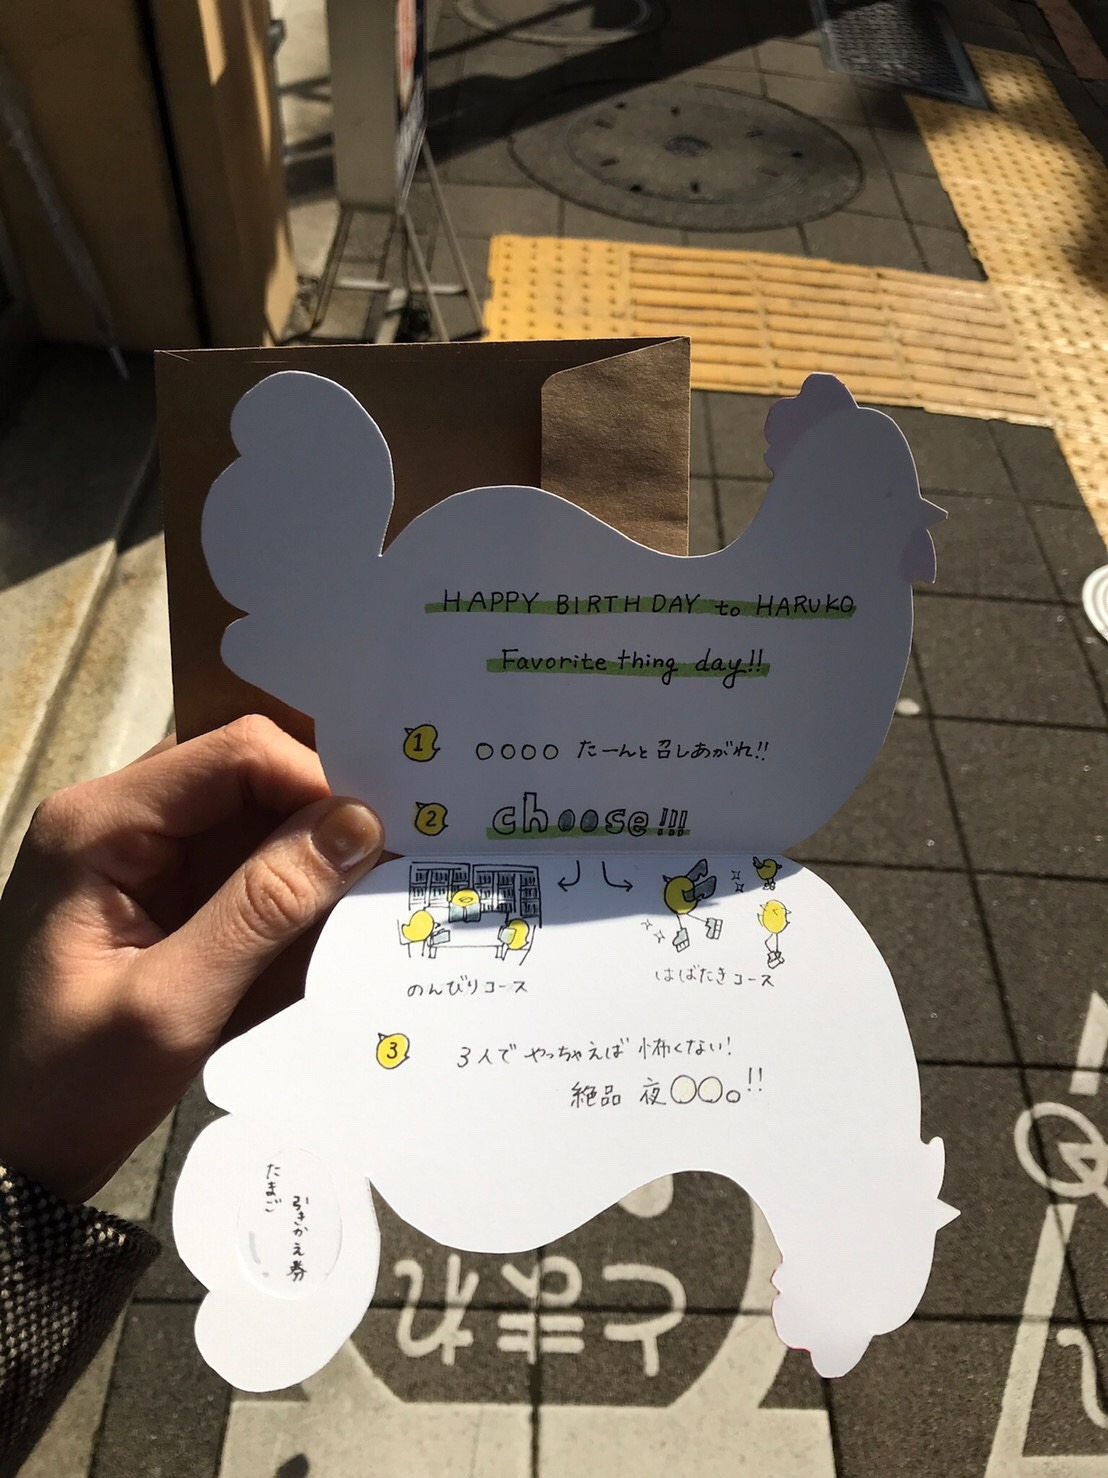 HAPPY BIRTHDAY to HARUKO
Favorite thing day!!
1 ○○○○ たーんと召しあがれ!!
2 choose!!!
のんびりコース
はばたきコース
3 3人でやっちゃえば怖くない!
絶品 夜○○。!!
たまご
引きかえ券
とまれ